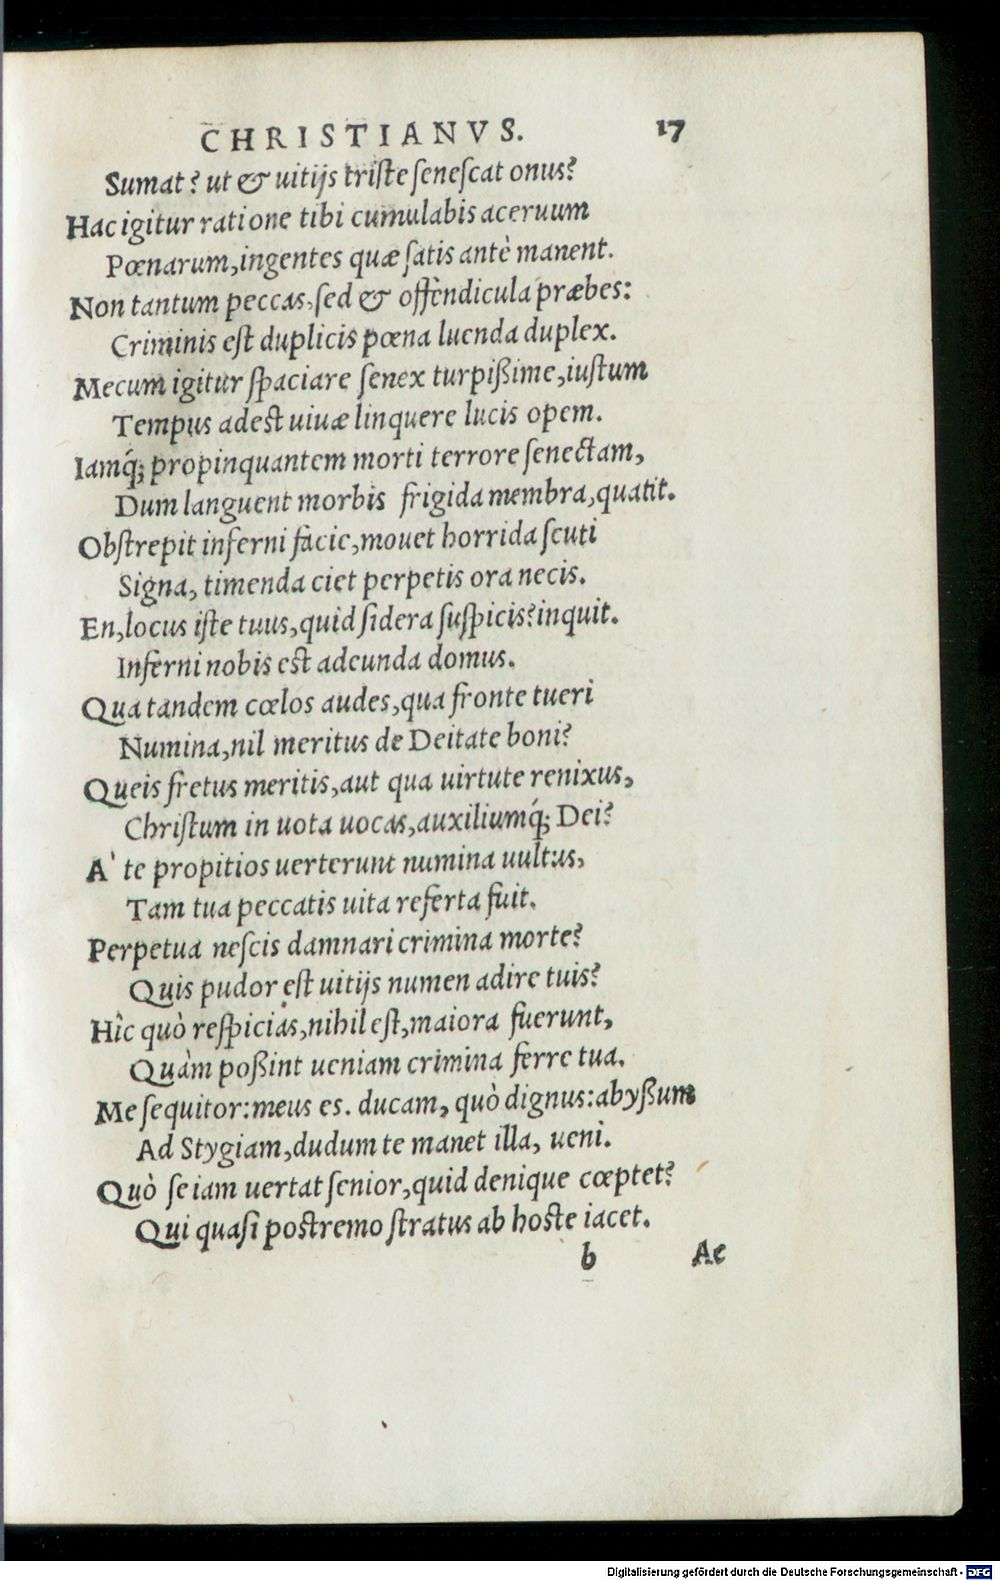 CHRISTIANVS. 17
Sumat? ut & uitijs triste senescat onus?
Hac igitur ratione tibi cumulabis aceruum
Pœnarum, ingentes quæ satis antè manent.
Non tantum peccas, sed & offendicula præbes:
Criminis est duplicis pœna luenda duplex.
Mecum igitur spaciare senex turpißime, iustum
Tempus adest uiuæ linquere lucis opem.
Iamq́; propinquantem morti terrore senectam,
Dum languent morbis frigida membra, quatit.
Obstrepit inferni facie, mouet horrida scuti
Signa, timenda ciet perpetis ora necis.
En, locus iste tuus, quid sidera suspicis? inquit.
Inferni nobis est adeunda domus.
Qua tandem cœlos audes, qua fronte tueri
Numina, nil meritus de Deitate boni?
Queis fretus meritis, aut qua uirtute renixus,
Christum in uota uocas, auxiliumq́; Dei?
A` te propitios uerterunt numina uultus,
Tam tua peccatis uita referta fuit.
Perpetua nescis damnari crimina morte?
Quis pudor est uitijs numen adire tuis?
Hîc quò respicias, nihil est, maiora fuerunt,
Quàm poßint ueniam crimina ferre tua.
Me sequitor: meus es. ducam, quò dignus: abyßum
Ad Stygiam, dudum te manet illa, ueni.
Quò se iam uertat senior, quid denique cœptet?
Qui quasi postremo stratus ab hoste iacet.
b Ac
Digitalisierung gefördert durch die Deutsche Forschungsgemeinschaft - DFG